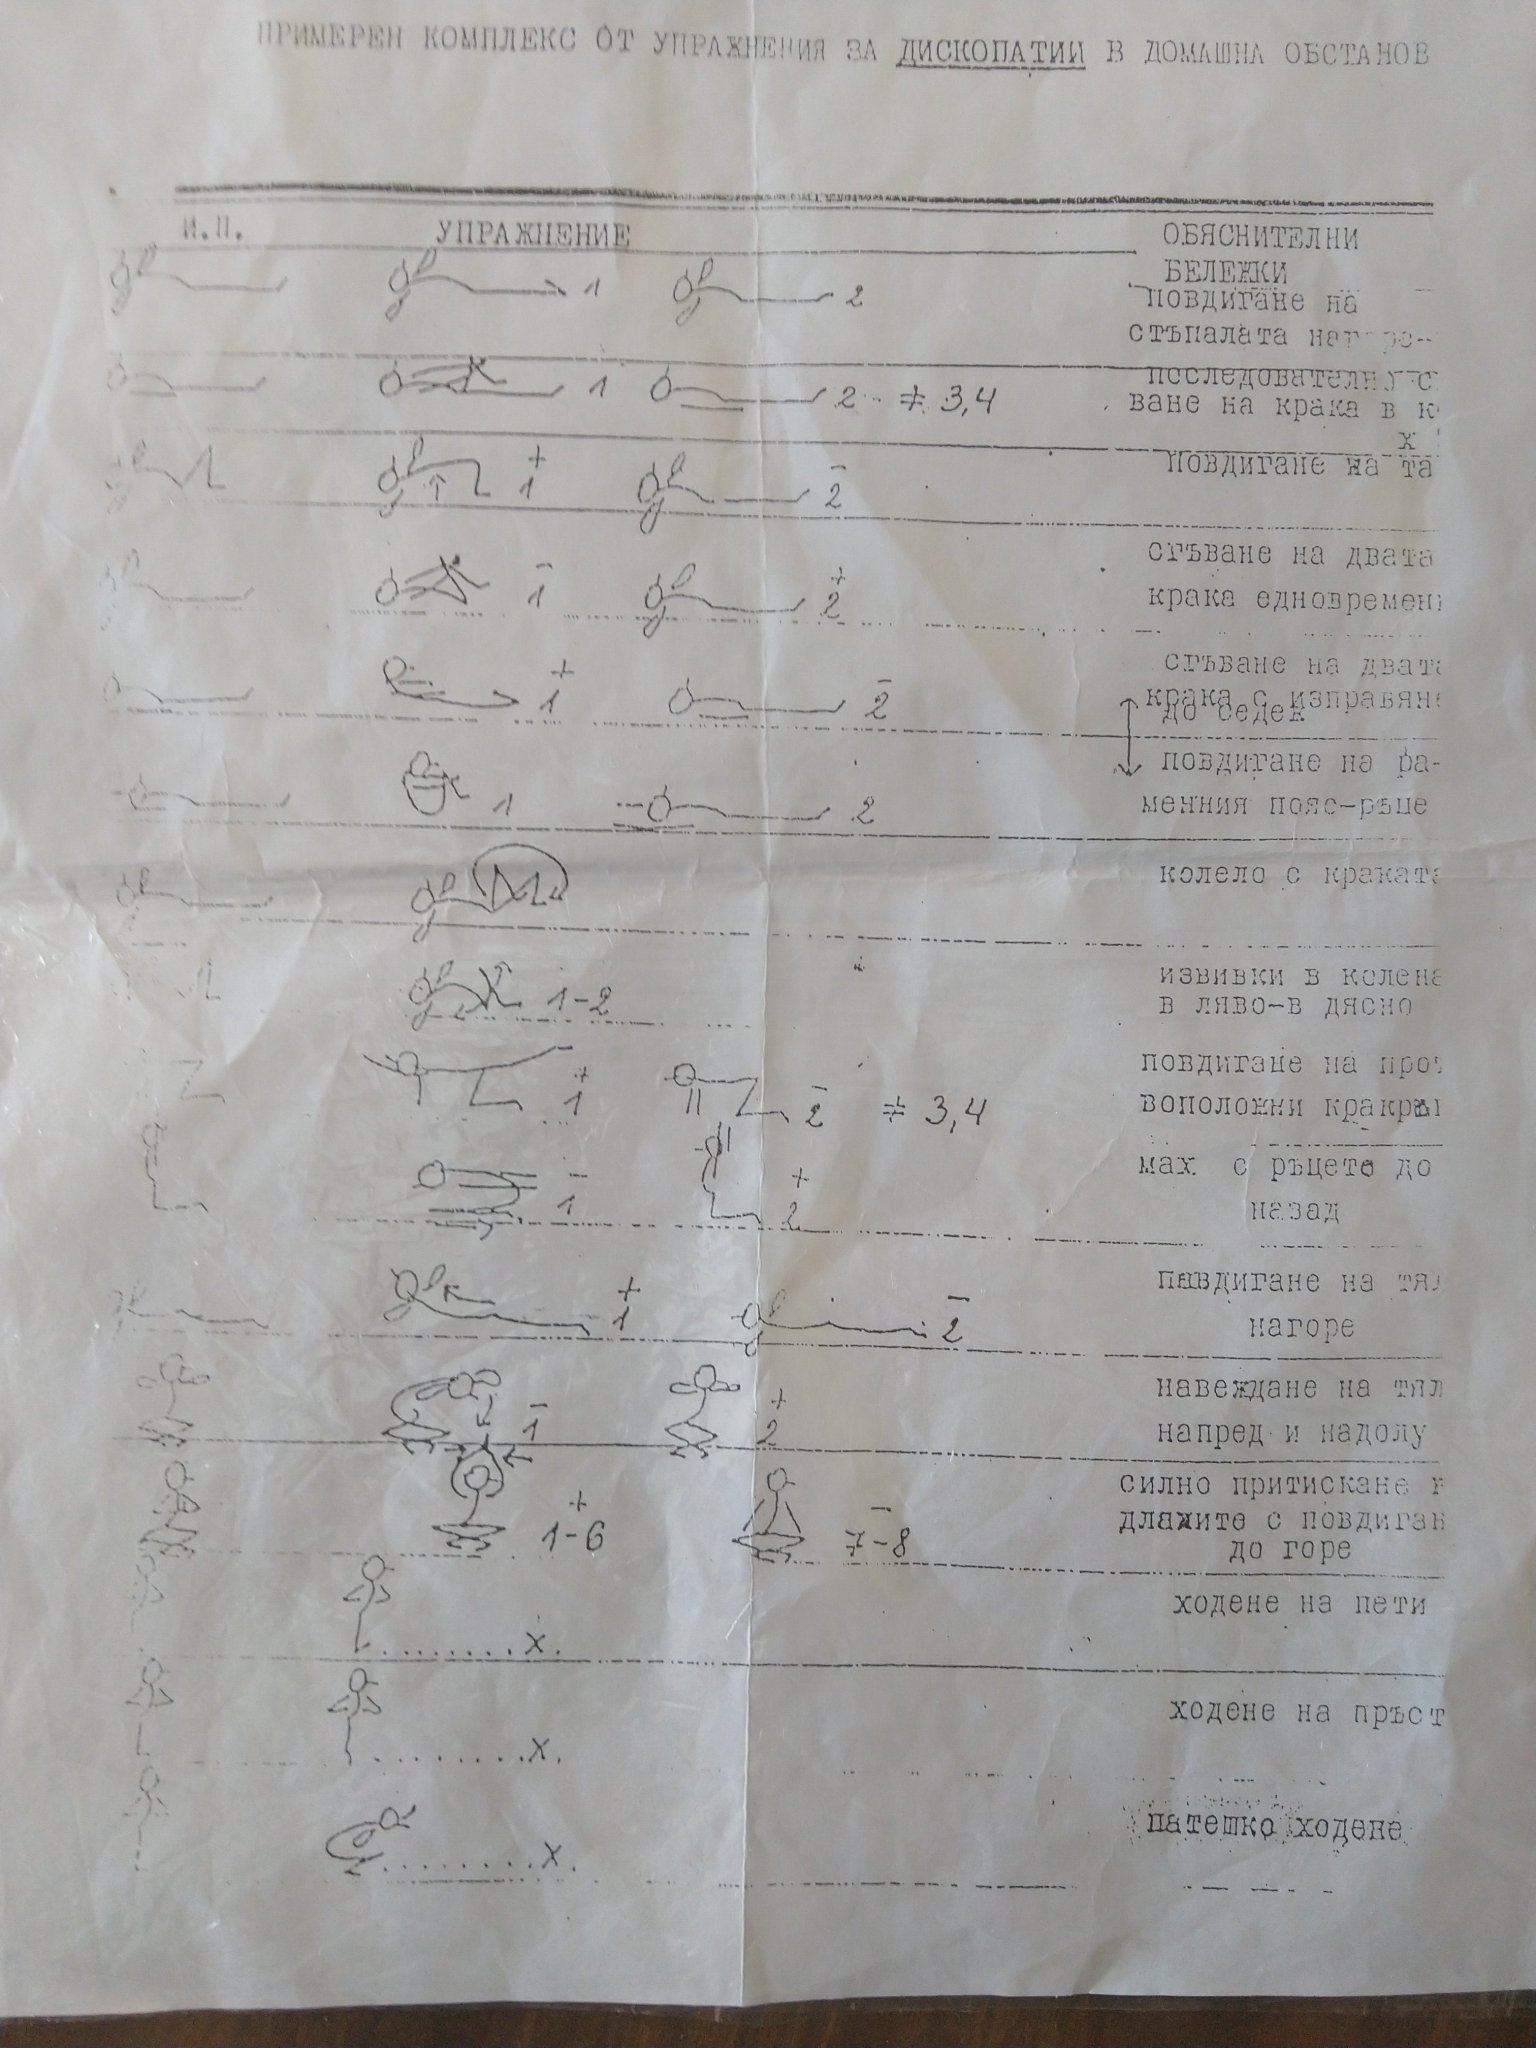 ПРИМЕРЕН КОМПЛЕКС ОТ УПРАЖНЕНИЯ ЗА ДИСКОПАТИИ В ДОМАШНА ОБСТАНОВ
И.П. УПРАЖНЕНИЕ ОБЯСНИТЕЛНИ
БЕЛЕЖКИ
1 2 повдигане на
стъпалата
1 2 ≠ 3,4
ване на крака в к
х
+ 1 - 2 повдигане на та
- 1 + 2 сгъване на двата
крака едновремен
+ 1 - 2 сгъване на двата
крака с изправяне
до седеж
1 2 повдигане на ра-
менния пояс-ръце
колело с краката
1-2 извивки в колена
в ляво-в дясно
+ 1 - 2 ≠ 3,4 повдигане на прот
воположни
- 1 + 2 мах с ръцете до
назад
+ 1 - 2 павдигане на тял
нагоре
- 1 + 2 навеждане на тял
напред и надолу
+ 1-6 - 7-8 силно притискане н
дланите с повдиган
до горе
ходене на пети
........х.
ходене на пръст
.........х.
патешко ходене
........х.